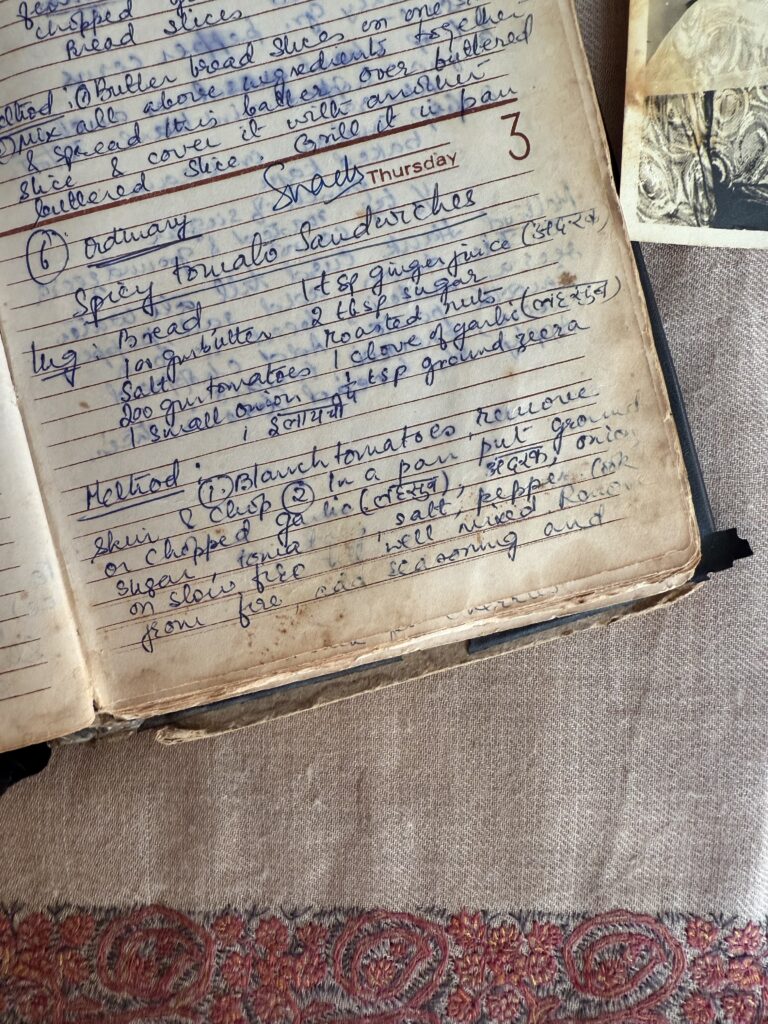 chopped
Bread slices
Method: ① Butter bread slices on one
② Mix all above ingredients together
& spread this batter over buttered
slice & cover it with another
buttered slice. Grill it in pan
Snacks Thursday 3
⑥ Ordinary
Spicy tomato Sandwiches
Ing: Bread 1 tsp ginger juice (अदरक)
100 gm butter 2 tbsp sugar
Salt roasted nuts
200 gm tomatoes 1 clove of garlic (लहसुन)
1 small onion ¼ tsp ground zeera
1 इलायची
Method: ① Blanch tomatoes, remove
skin & chop ② In a pan put ground
or chopped garlic (लहसुन), अदरक, onion
sugar, salt, pepper. Cook
on slow fire well mixed. Remove
from fire add seasoning and